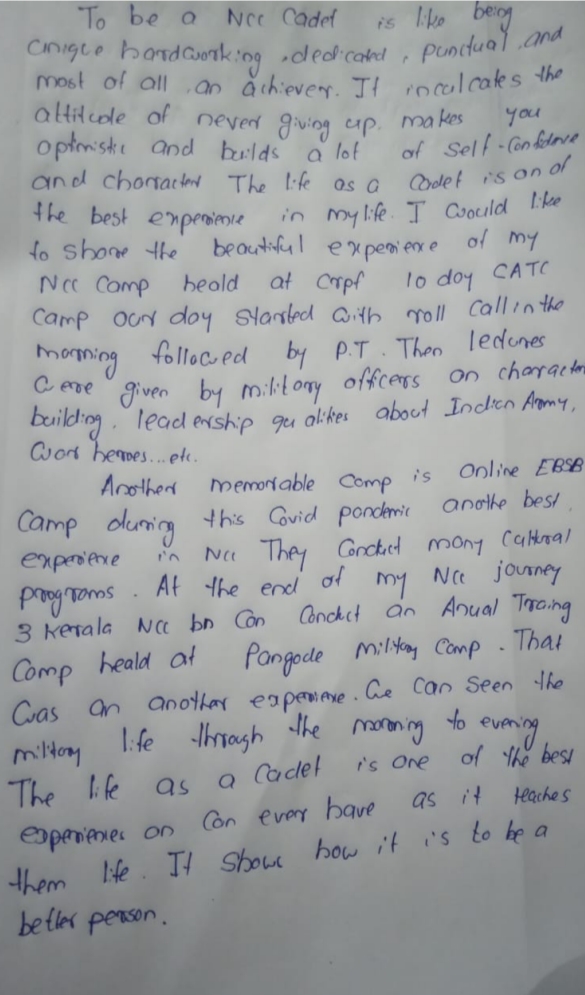 To be a Ncc Cadet is like being
unique hardworking, dedicated, punctual, and
most of all, an achiever. It inculcates the
attitude of never giving up. makes you
optimistic and builds a lot of Self-Confidence
and character The life as a Cadet is on of
the best experience in my life. I would like
to share the beautiful experience of my
Ncc Camp heald at Crpf 10 day CATC
Camp our day started with roll call in the
morning followed by P.T. Then lectures
were given by military officers on character
building, leadership qualities about Indian Army,
war heroes...etc.
Another memorable camp is Online EBSB
Camp during this Covid pandemic anothe best
experience in Ncc They Conduct many Cultural
programs. At the end of my Ncc journey
3 Kerala Ncc bn Can Conduct an Anual Traning
Camp heald at Pangode military Camp. That
was an another experience. we can seen the
military life through the morning to evening
The life as a Cadet is one of the best
experiences on Can ever have as it teaches
them life. It Shows how it is to be a
better person.